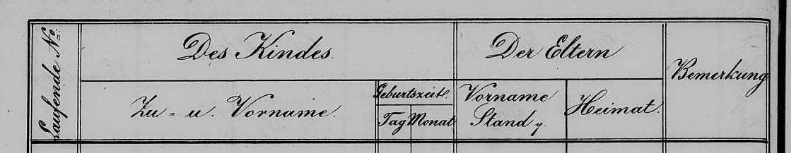 Laufende No.
Des Kindes.
Der Eltern
Bemerkung
Zu- u. Vorname.
Geburtszeit.
Tag Monat
Vorname
Stand
Heimat.